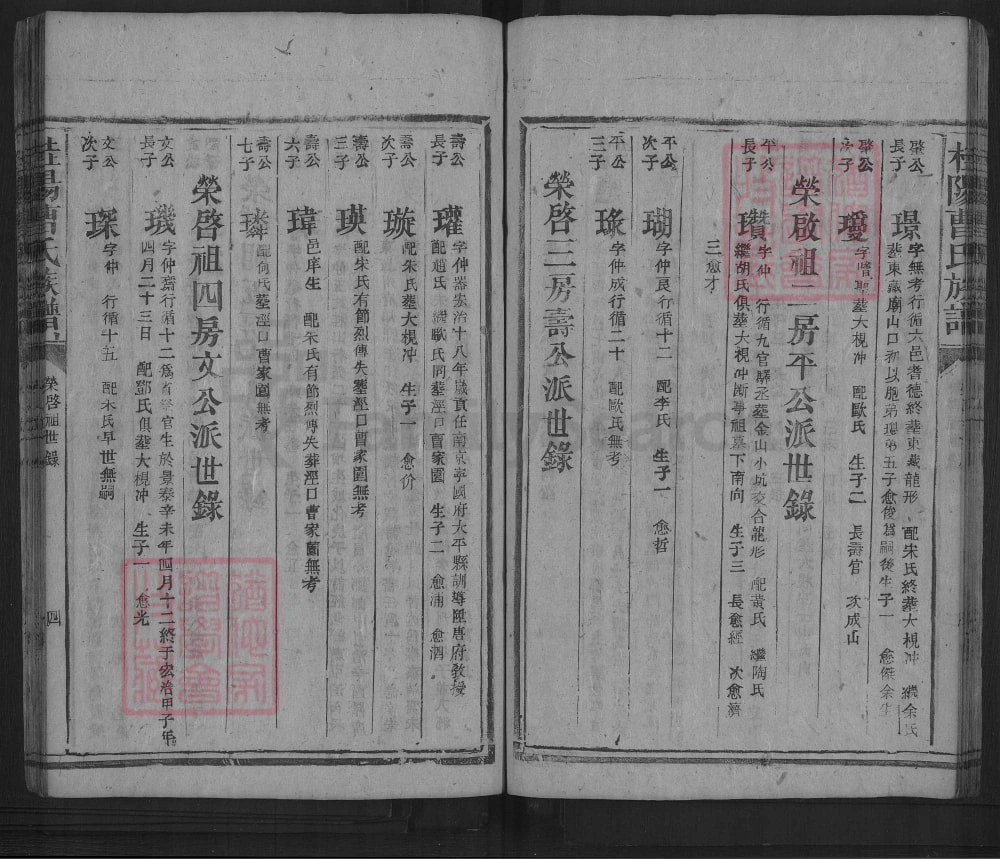 桂陽曹氏族譜
長子
璟
字無考行循六邑耆德終葬東藏龍形 配宋氏終葬大梘冲 繼余氏
葬東藏廟山口
愈俊爲嗣後生子一 愈傑余生
次子
璦
葬大梘冲 配歐氏 生子二 長壽官 次成山
榮啟祖二房平公派世錄
平公
長子
字仲 行循九官驛丞葬金山小坑交合龍形 配黃氏 繼陶氏
繼胡氏俱葬大梘冲 下南向 生子三 長愈經 次愈濟
三愈才
平公
次子
瑚
字仲良行循十二 配李氏 生子一 愈哲
平公
三子
瑑
字仲成行循二十 配歐氏無考
榮啓三房壽公派世錄
壽公
長子
瓘
字仲器宏治十八年歲貢任南京寧國府太平縣訓導陞唐府敎授
配趙氏 繼歐氏同葬涇口曹家園 生子二 愈浦 愈泗
壽公
次子
璇
配朱氏葬大梘冲 生子一 愈价
壽公
三子
瑛
配宋氏有節烈傳失葬涇口曹家園無考
壽公
六子
瑋
邑庠生 配朱氏有節烈傳失葬涇口曹家園無考
壽公
七子
璘
配何氏葬涇口曹家園無考
榮啓祖四房文公派世錄
文公
長子
璣
字仲齋行循十二爲 官生於景泰辛未年四月十二終于宏治甲子年
四月二十三日 配鄧氏俱葬大梘冲 生子一 愈光
文公
次子
琛
字仲 行循十五 配宋氏早世無嗣
桂陽曹氏族譜
榮啓祖世錄
四